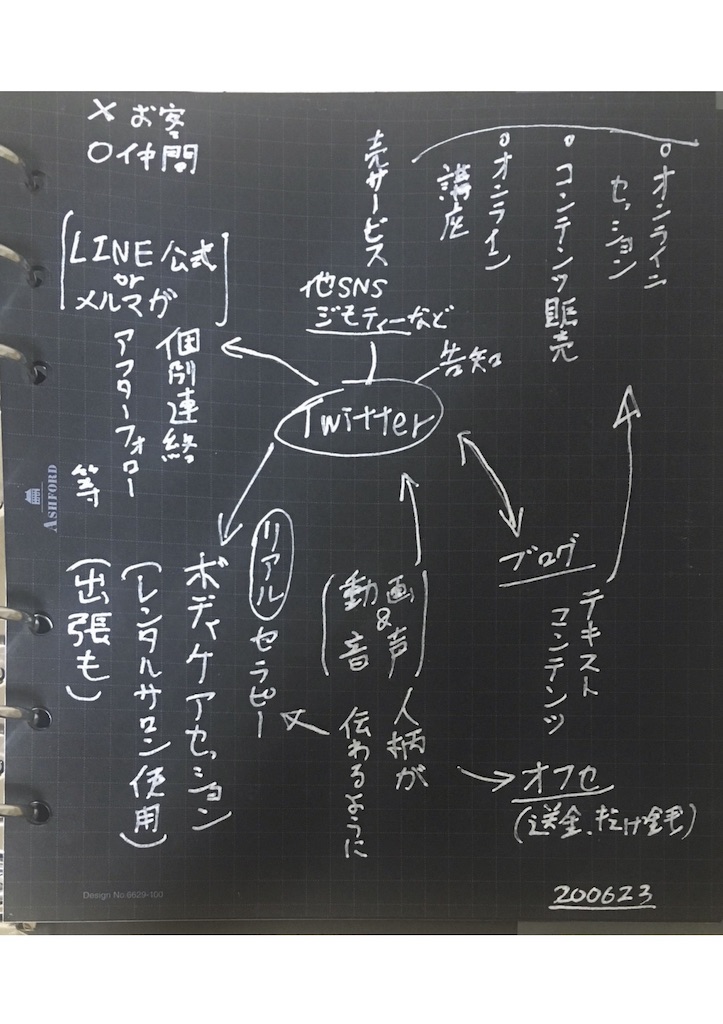 × お客
○ 仲間
売サービス
○オンライン
セッション
○コンテンツ販売
○オンライン
講座
LINE公式
or
メルマガ
個別連絡
アフターフォロー
等
他SNS
ジモティーなど
告知
Twitter
ブログ
テキスト
コンテンツ
(動画
&
音声)
人柄が
伝わるように
リアル
セラピー
ボディケアセッション
(レンタルサロン使用)
(出張も)
オフセ
(送金、
200623
ASHFORD
Design No.6629-100